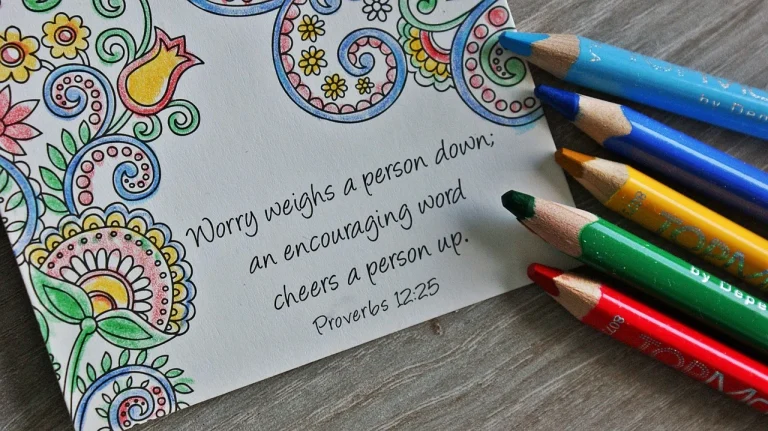 Worry weighs a person down;
an encouraging word
cheers a person up.
Proverbs 12:25
by Depe
TOPM
TOPMO